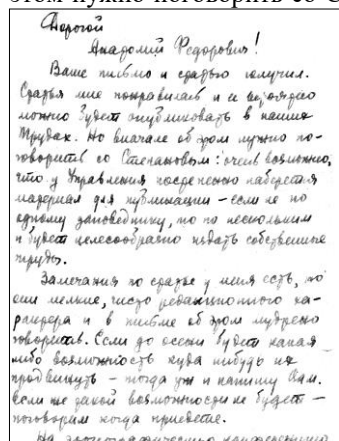 этом нужно поговорить со С
Дорогой
Анатолий Федорович!
Ваше письмо и статью получил.
Статья мне понравилась и ее вероятно
можно будет опубликовать в наших
Трудах. Но вначале об этом нужно по-
говорить со Степановым: очень возможно,
что у Управления постепенно наберется
материал для публикации – если не по
одному заповеднику, то по нескольким
и будет целесообразно издать собственные
труды.
Замечания по статье у меня есть, но
они мелкие, чисто редакционного ха-
рактера и в письме об этом мудрено
говорить. Если до осени будет какая
либо возможность куда нибудь их
продвинуть – тогда уж я напишу Вам.
если же такой возможности не будет –
поговорим когда приедете.
На зоогеографическую конференцию